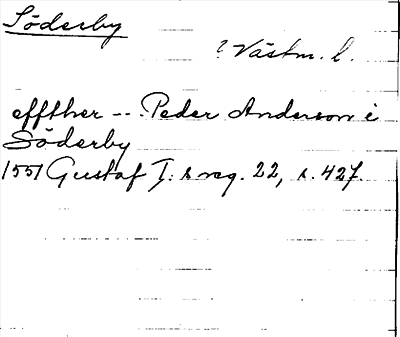 Söderby
? Västm. l.
effther -- Peder Anderson i
Söderby
1551 Gustaf I: s reg. 22, s. 427.